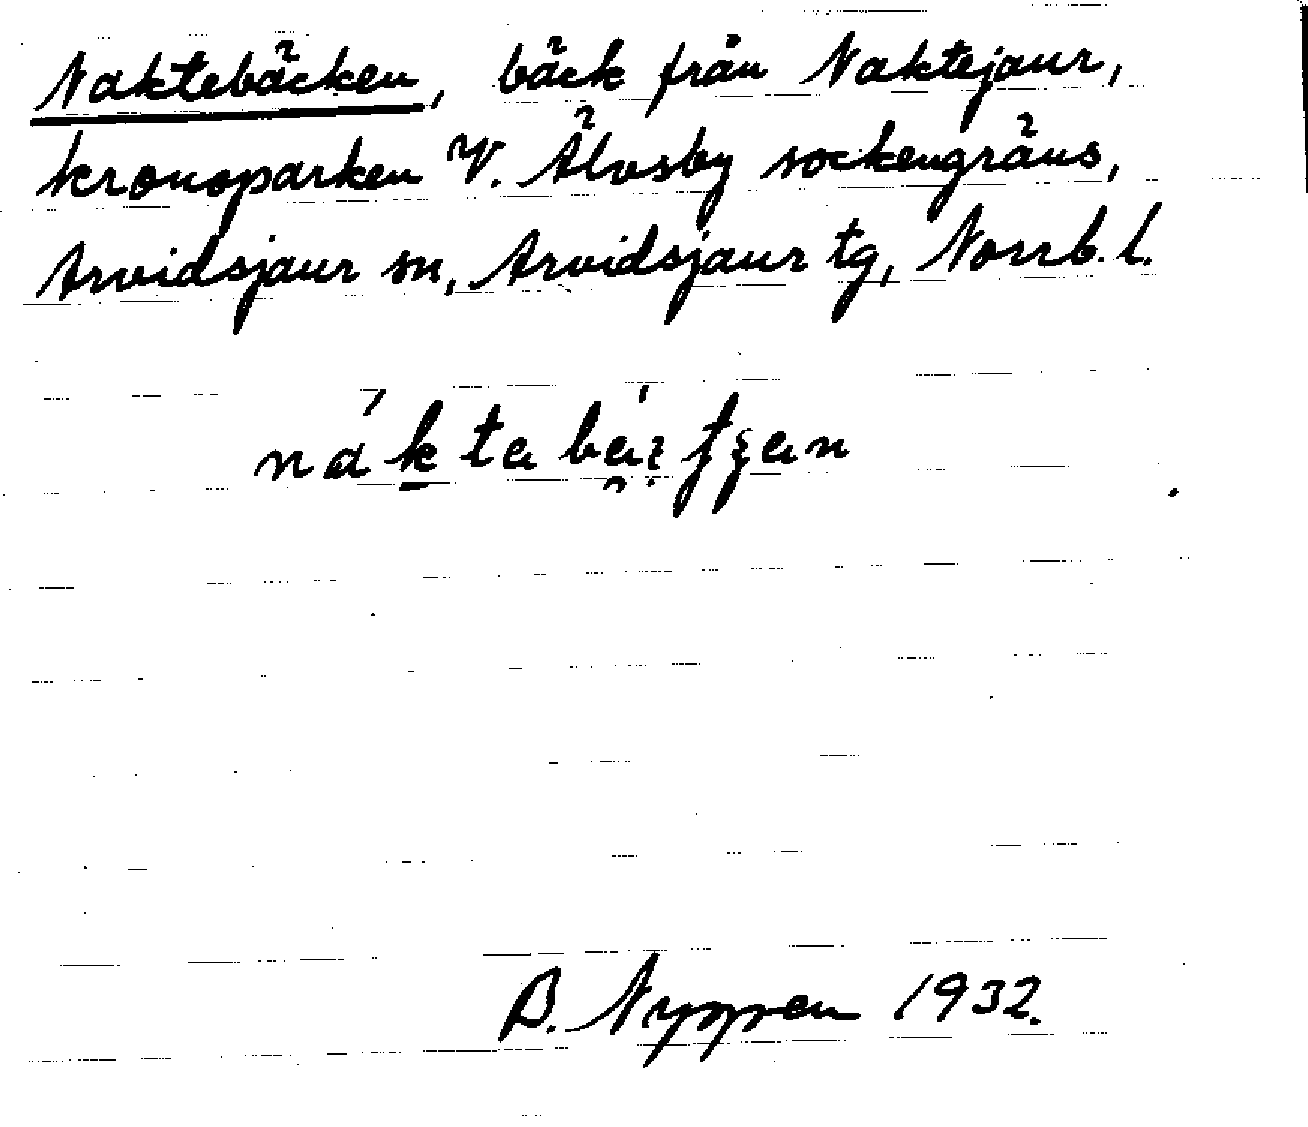 Naktebäcken, bäck från Naktejaur,
kronoparken V. Älvsby sockengräns,
Arvidsjaur sn, Arvidsjaur tg, Norrb. l.
1932.